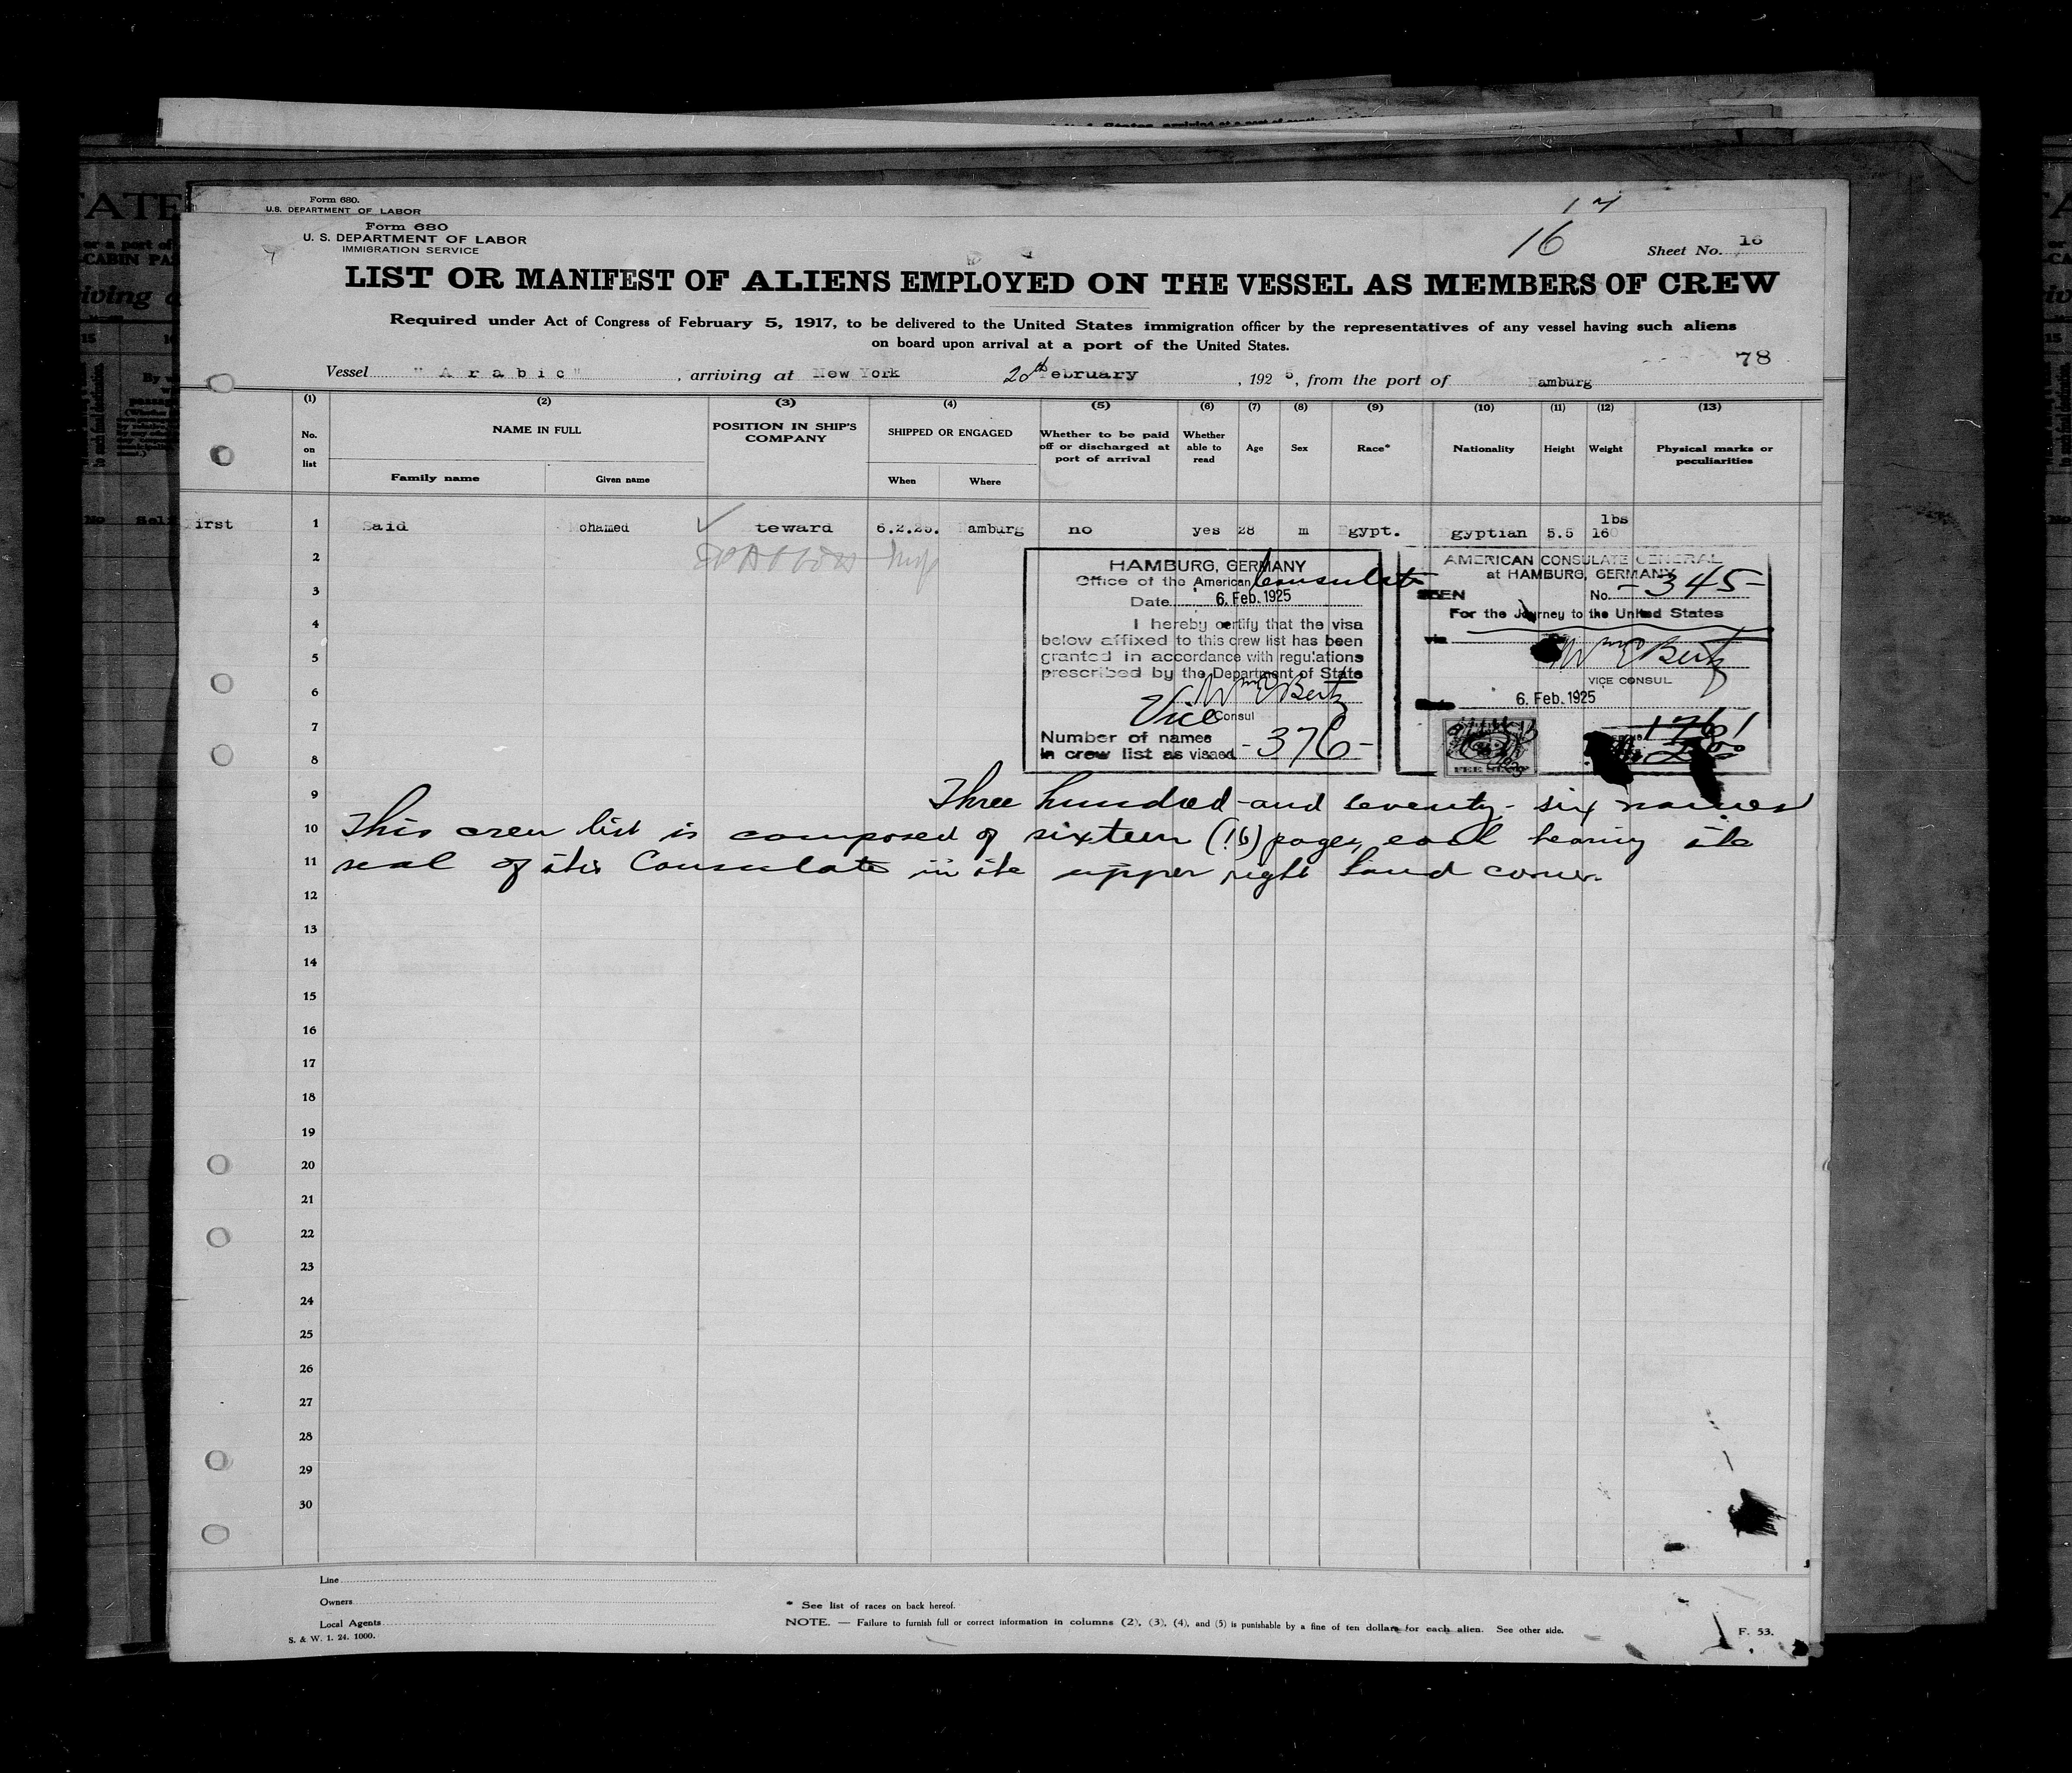 Form 680.
U.S. DEPARTMENT OF LABOR
Form 680
U. S. DEPARTMENT OF LABOR
IMMIGRATION SERVICE
17
16
Sheet No. 16
LIST OR MANIFEST OF ALIENS EMPLOYED ON THE VESSEL AS MEMBERS OF CREW
Required under Act of Congress of February 5, 1917, to be delivered to the United States immigration officer by the representatives of any vessel having such aliens
on board upon arrival at a port of the United States.
78
Vessel "Arabic", arriving at New York 20th February, 1925, from the port of Hamburg
(1) (2) (3) (4) (5) (6) (7) (8) (9) (10) (11) (12) (13)
No. on list
NAME IN FULL
Family name Given name
POSITION IN SHIP'S COMPANY
SHIPPED OR ENGAGED
When Where
Whether to be paid off or discharged at port of arrival
Whether able to read
Age
Sex
Race*
Nationality
Height
Weight
Physical marks or peculiarities
lbs
irst 1 Said ohamed teward 6.2.25. amburg no yes 28 m Egypt. gyptian 5.5 160
2
3
4
5
6
7
8
9
10
11
12
13
14
15
16
17
18
19
20
21
22
23
24
25
26
27
28
29
30
HAMBURG, GERMANY
Office of the American Consulate
Date 6. Feb. 1925
I hereby certify that the visa
below affixed to this crew list has been
granted in accordance with regulations
prescribed by the Department of State
Wm E Bertz
Vice Consul
Number of names
in crew list as visaed -376-
AMERICAN CONSULATE GENERAL
at HAMBURG, GERMANY
SEEN No. -345-
For the Journey to the United States
via
Wm E Bertz
VICE CONSUL
6. Feb. 1925
1761
FEE STAMP
Three hundred and seventy-six names
This crew list is composed of sixteen (16) pages, each bearing the
seal of this Consulate in the upper right hand corner.
Line
Owners
Local Agents
S. & W. 1. 24. 1000.
* See list of races on back hereof.
NOTE. — Failure to furnish full or correct information in columns (2), (3), (4), and (5) is punishable by a fine of ten dollars for each alien. See other side.
F. 53.